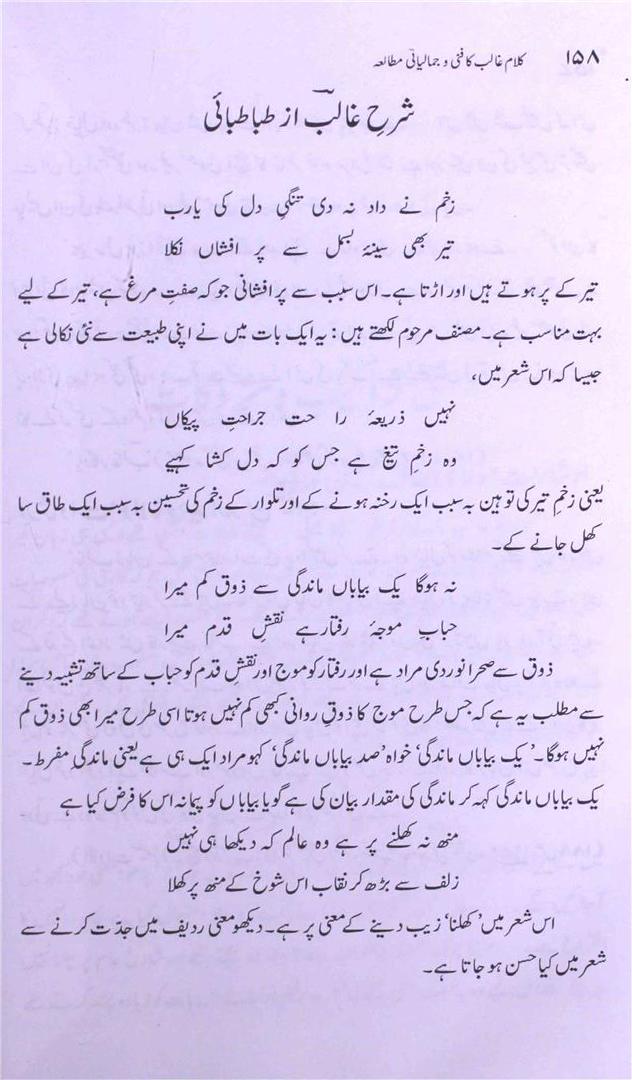 ۱۵۸ کلام غالب کا فنی و جمالیاتی مطالعہ
شرحِ غالب از طباطبائی
زخم نے داد نہ دی تنگیِ دل کی یارب
تیر بھی سینۂ بسمل سے پر افشاں نکلا
تیر کے پر ہوتے ہیں اور اڑتا ہے۔ اس سبب سے پر افشانی جو کہ صفتِ مرغ ہے، تیر کے لیے
بہت مناسب ہے۔ مصنف مرحوم لکھتے ہیں: یہ ایک بات میں نے اپنی طبیعت سے نئی نکالی ہے
جیسا کہ اس شعر میں،
نہیں ذریعۂ را حت جراحتِ پیکاں
وہ زخمِ تیغ ہے جس کو کہ دل کشا کہیے
یعنی زخمِ تیر کی توہین بہ سبب ایک رخنہ ہونے کے اور تلوار کے زخم کی تحسین بہ سبب ایک طاق سا
کھل جانے کے۔
نہ ہوگا یک بیاباں ماندگی سے ذوق کم میرا
حبابِ موجۂ رفتار ہے نقشِ قدم میرا
ذوق سے صحرا نوردی مراد ہے اور رفتار کو موج اور نقشِ قدم کو حباب کے ساتھ تشبیہ دینے
سے مطلب یہ ہے کہ جس طرح موج کا ذوقِ روانی کبھی کم نہیں ہوتا اسی طرح میرا بھی ذوق کم
نہیں ہوگا۔ ’یک بیاباں ماندگی‘ خواہ ’صد بیاباں ماندگی‘ کہو مراد ایک ہی ہے یعنی ماندگی مفرط۔
یک بیاباں ماندگی کہہ کر ماندگی کی مقدار بیان کی ہے گویا بیاباں کو پیمانہ اس کا فرض کیا ہے
منھ نہ کھلنے پر ہے وہ عالم کہ دیکھا ہی نہیں
زلف سے بڑھ کر نقاب اس شوخ کے منھ پر کھلا
اس شعر میں ’کھلنا‘ زیب دینے کے معنی پر ہے۔ دیکھو معنی ردیف میں جدّت کرنے سے
شعر میں کیا حسن ہو جاتا ہے۔